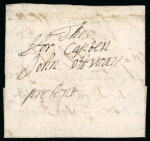 These
For Capten
John Ottway
present